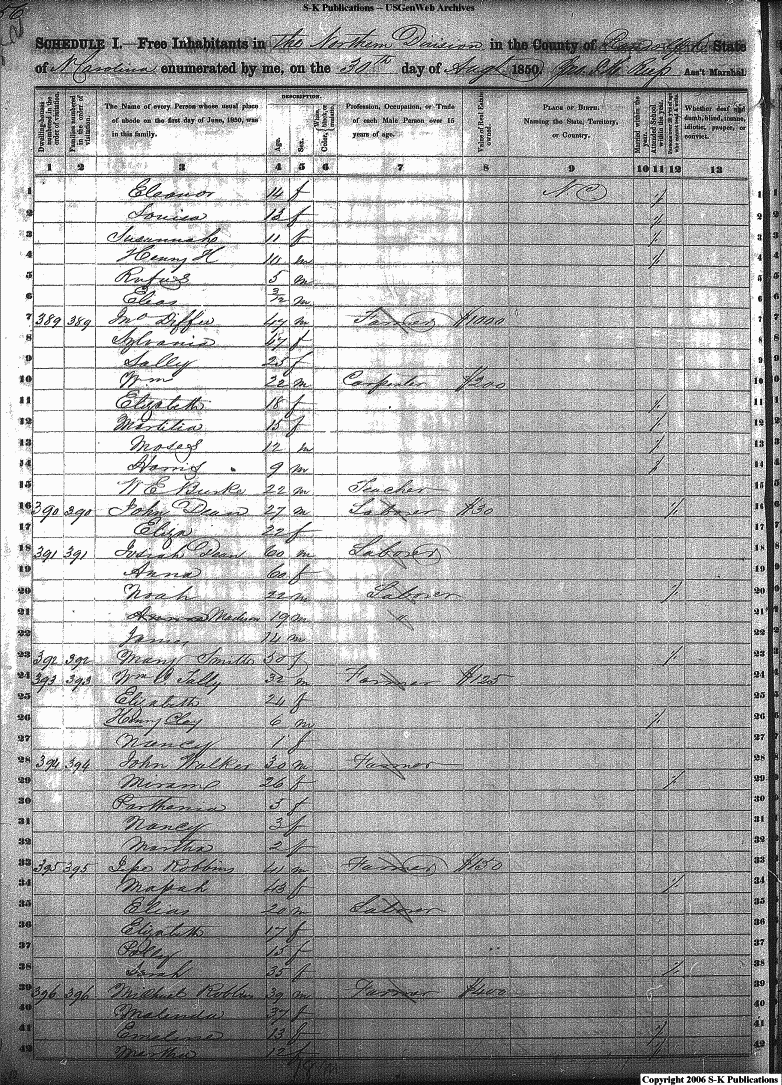 S-K Publications -- USGenWeb Archives
SCHEDULE I.—Free Inhabitants in The Northern Division in the County of State
of N Carolina enumerated by me, on the 30th day of Augt 1850. Ass't Marshal.
Dwelling-houses numbered in the order of visitation. Families numbered in the order of visitation. The Name of every Person whose usual place of abode on the first day of June, 1850, was in this family. DESCRIPTION. Age. Sex. Color, Profession, Occupation, or Trade of each Male Person over 15 years of age. Value of Real Estate owned. PLACE OF BIRTH. Naming the State, Territory, or Country. Married within the year. Attended School within the year. Whether deaf and dumb, blind, insane, idiotic, pauper, or convict.
1 2 3 4 5 6 7 8 9 10 11 12 13
1 Eleanor 14 f N C / 1
2 Louisa 13 f / 2
3 Susannah 11 f / 3
4 Henry H 10 m / 4
5 Rufus 5 m
6 Elias 3/12 m
7 389 389 Jno Diffee 47 m Farmer $1000 7
8 Sylvania 47 f
9 Sally 25 f
10 Wm 22 m Carpenter $200
11 Elizabeth 18 f /
12 Martitia 15 f /
13 Moses 12 m /
14 Harris 9 m /
15 W E Burke 22 m Teacher
16 390 390 John Dean 27 m Laborer $30 /
17 Eliza 22 f
18 391 391 Josiah Dean 60 m Laborer
19 Anna 60 f
20 Noah 22 m Laborer /
21 Madison 19 m
22 James 14 m
23 392 392 Mary Smith 50 f /
24 393 393 Wm Tally 32 m Farmer $125
25 Elizabeth 24 f
26 Henry Clay 6 m /
27 Nancy 1 f
28 394 394 John Walker 30 m Farmer
29 Miriam 26 f /
30 Parthania 5 f
31 Nancy 3 f
32 Martha 2 f
33 395 395 Robbins 41 m Farmer $150
34 43 f /
35 Elias 20 m Laborer
36 Elizabeth 17 f
37 Polly 15 f
38 Sarah 35 f /
39 396 396 Michael Robbins 39 m Farmer $400
40 Malinda 37 f
41 Emaline 13 f /
42 Martha 12 f /
Copyright 2006 S-K Publications